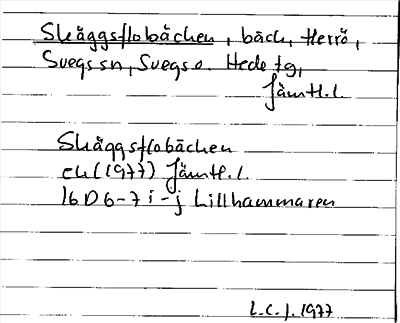 Skäggsflobäcken, bäck, Herrö,
Svegs sn, Svegs o. Hede tg,
Jämtl.l.
Skäggsflobäcken
ek (1977) Jämtl.l.
16D 6-7 i-j Lillhammaren
L.C.J. 1977